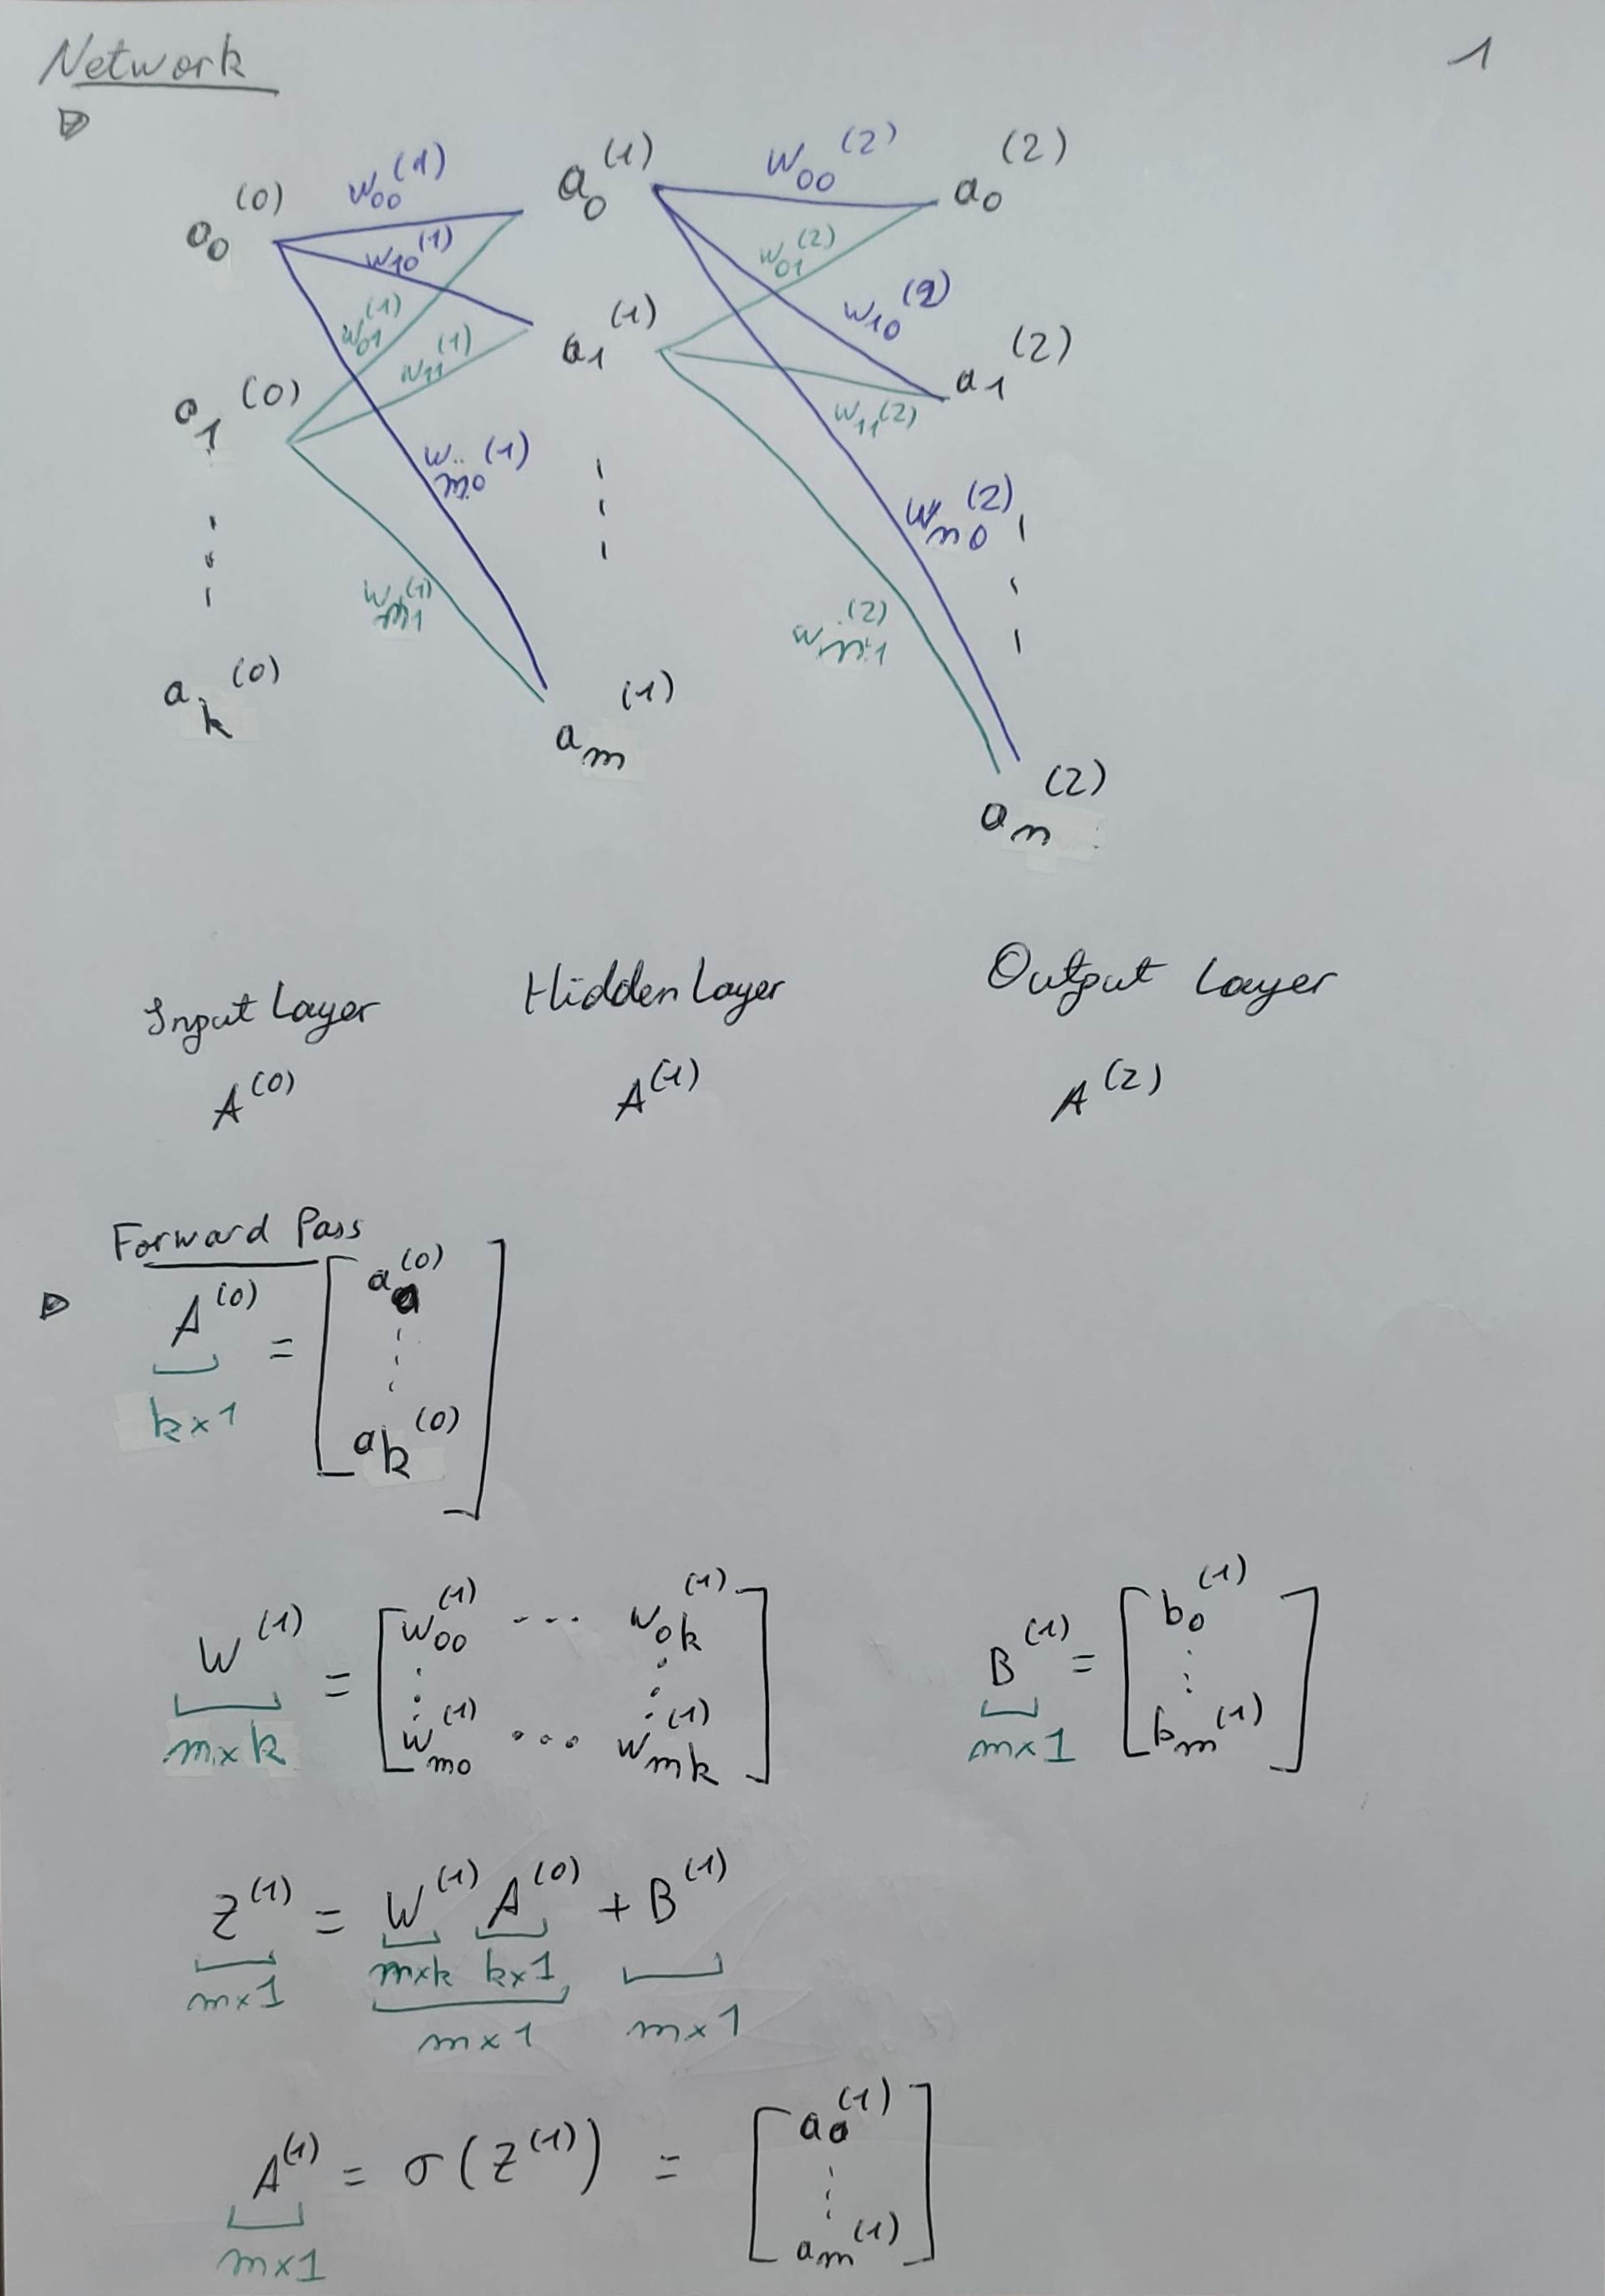 Network 1
w00^(1) a0^(1) w00^(2) a0^(2)
a0^(0) w10^(1) w01^(2)
w01^(1) w10^(2)
a1^(0) w11^(1) a1^(1) a1^(2)
w11^(2)
wm0^(1) wn0^(2)
wm1^(1) wn1^(2)
ak^(0) am^(1)
an^(2)
Input Layer Hidden Layer Output Layer
A^(0) A^(1) A^(2)
Forward Pass
A^(0) = [ a0^(0) ⋮ ak^(0) ]
k×1
W^(1) = [ w00^(1) ... w0k^(1) ⋮ ⋮ wm0^(1) ... wmk^(1) ] B^(1) = [ b0^(1) ⋮ bm^(1) ]
m×k m×1
Z^(1) = W^(1) A^(0) + B^(1)
m×1 m×k k×1
m×1 m×1
A^(1) = σ(Z^(1)) = [ a0^(1) ⋮ am^(1) ]
m×1